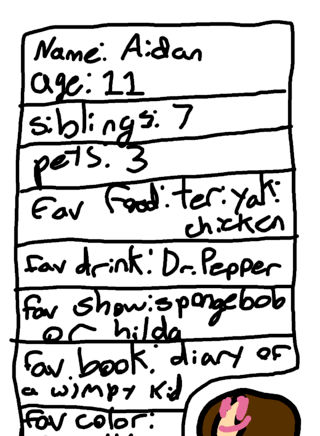 Name: Aidan
age: 11
siblings: 7
pets. 3
Fav food: teriyaki
chicken
fav drink: Dr. Pepper
fav show: spongebob
or hilda
fav book: diary of
a wimpy kid
fav color: